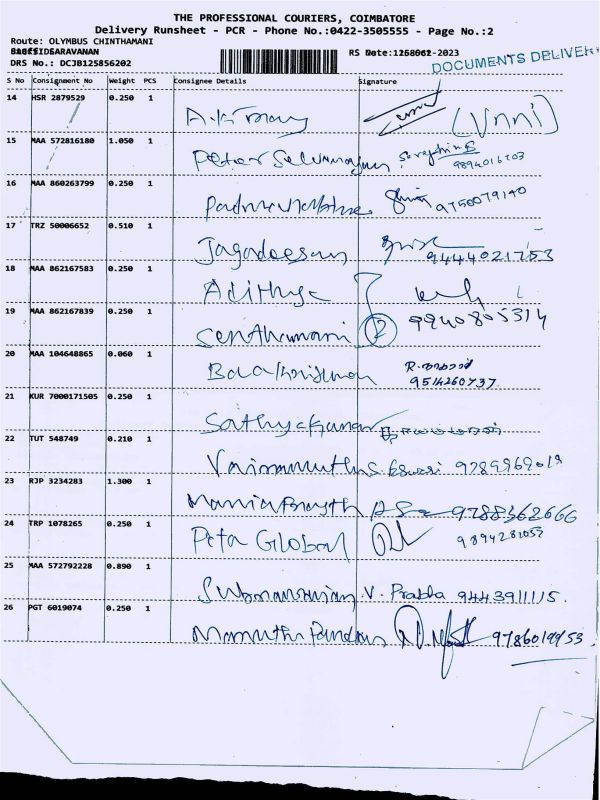 THE PROFESSIONAL COURIERS, COIMBATORE
Delivery Runsheet - PCR - Phone No.:0422-3505555 - Page No.:2
Route: OLYMBUS CHINTHAMANI
SARAVANAN
RS Date:
-2023
DOCUMENTS DELIVER
DRS No.: DCJB125856202
S No Consignment No Weight PCS Consignee Details Signature
14 HSR 2879529 0.250 1
(Unni)
15 MAA 572816180 1.050 1
Peter Selvarajan
9894016703
16 MAA 860263799 0.250 1
9750079140
17 TRZ 50006652 0.510 1
Jagadeesan 9444021753
18 MAA 862167583 0.250 1
Adithya
19 MAA 862167839 0.250 1
Senthamani 2 9940805314
20 MAA 104648865 0.060 1
Balakrishnan
9514260737
21 KUR 7000171505 0.250 1
Sathyakumar
22 TUT 548749 0.210 1
Vairamuthu 9789969019
23 RJP 3234283 1.300 1
9788362666
24 TRP 1078265 0.250 1
Peta Global
25 MAA 572792228 0.890 1
Subramanian V. Prabha 9443911115.
26 PGT 6019074 0.250 1